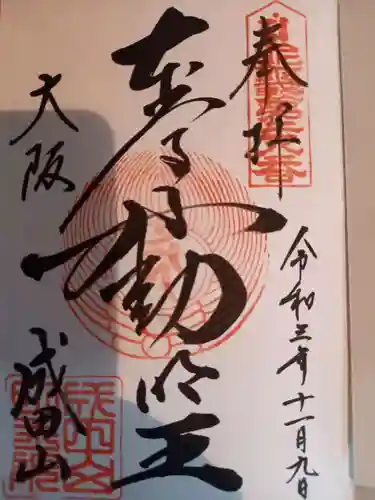 奉拝
令和三年十一月九日
本尊不動明王
大阪
成田山